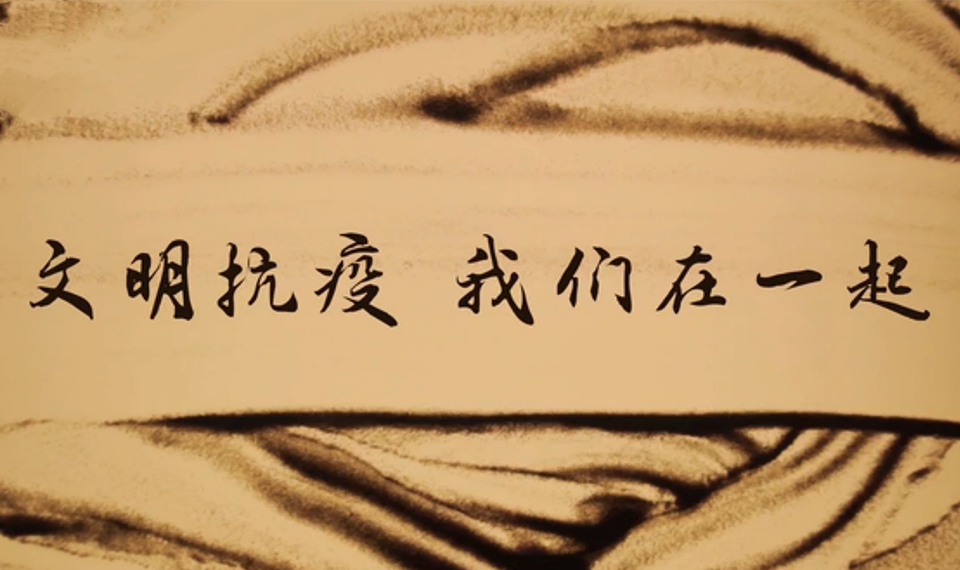 文明抗疫 我们在一起